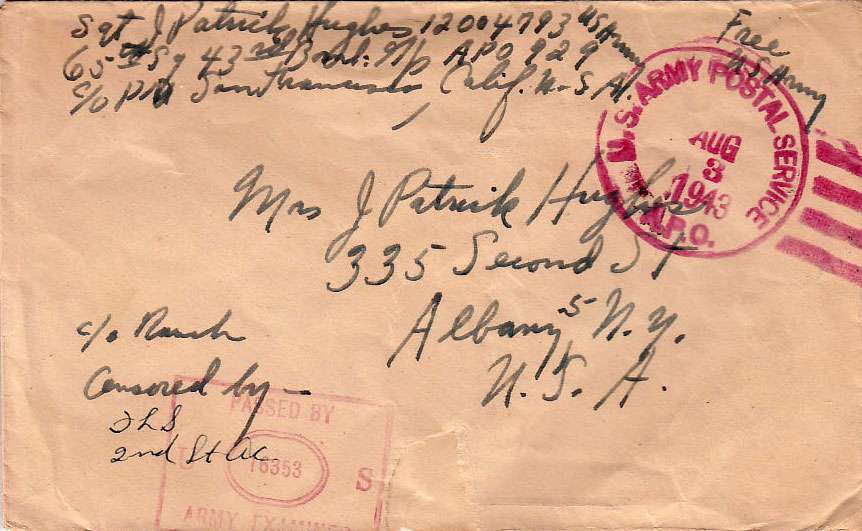 Sgt J Patrick Hughes 12004793 US Army
65th Sq 43rd Bomb. Gp APO 929
c/o PM San Francisco Calif. U.S.A.
Free
US Army
U.S. ARMY POSTAL SERVICE
AUG
3
1943
A.P.O.
Mrs J Patrick Hughes
335 Second St
Albany 5 N.Y.
U.S.A.
c/o
Censored by —
2nd Lt AC
PASSED BY
U 16353 S
ARMY EXAMINER